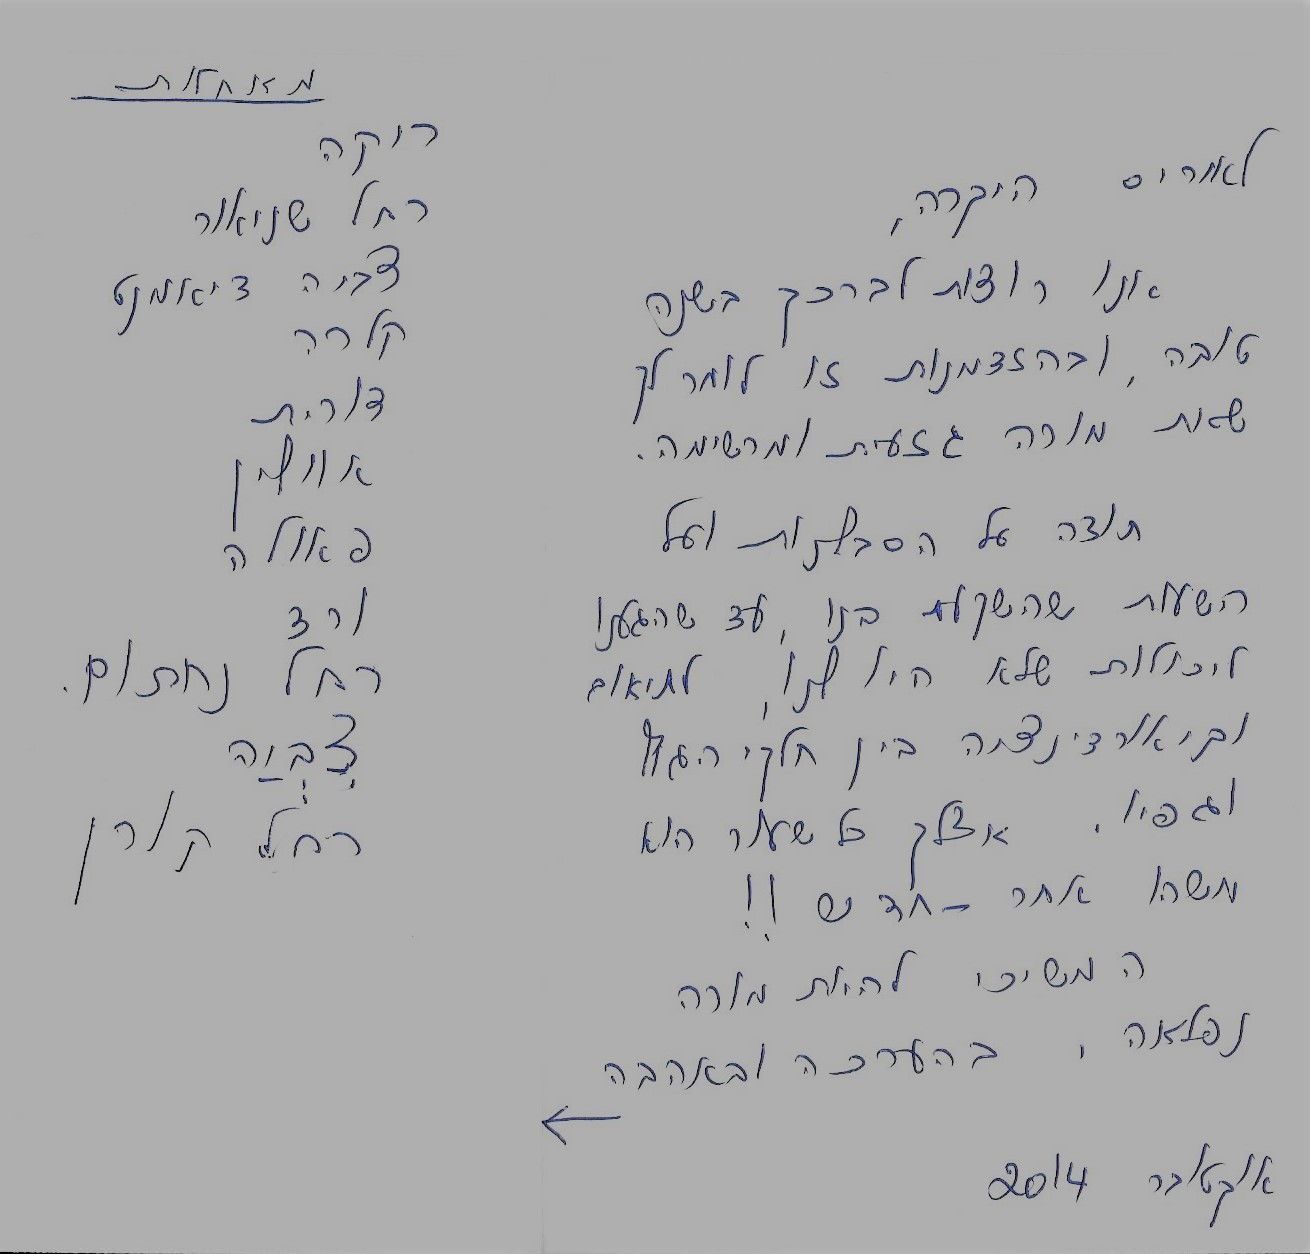 לאוריס היקרה,
אנו רוצות לברכך בשנה
טובה, ובהזדמנות זו לומר לך
שאת מורה גזעית ומרשימה.
תודה על הסבלנות ועל
השעות שהשקעת בנו, עד שהגענו
ליכולות שלא היו לנו, לתיאום
וקיאורדינציה בין חלקי הגוף
וגפיו. אצלך כל שעור הוא
משהו אחר - חדש !!
המשיכי להיות מורה
נפלאה, בהערכה ובאהבה
←
אוקטובר 2014
מאוחדות
רוקה
רחל שניאור
צביה דיאמנט
קלרה
דורית
אוולין
פאולה
ורד
רחל נחתום.
צִבְיַה
רחל קורן